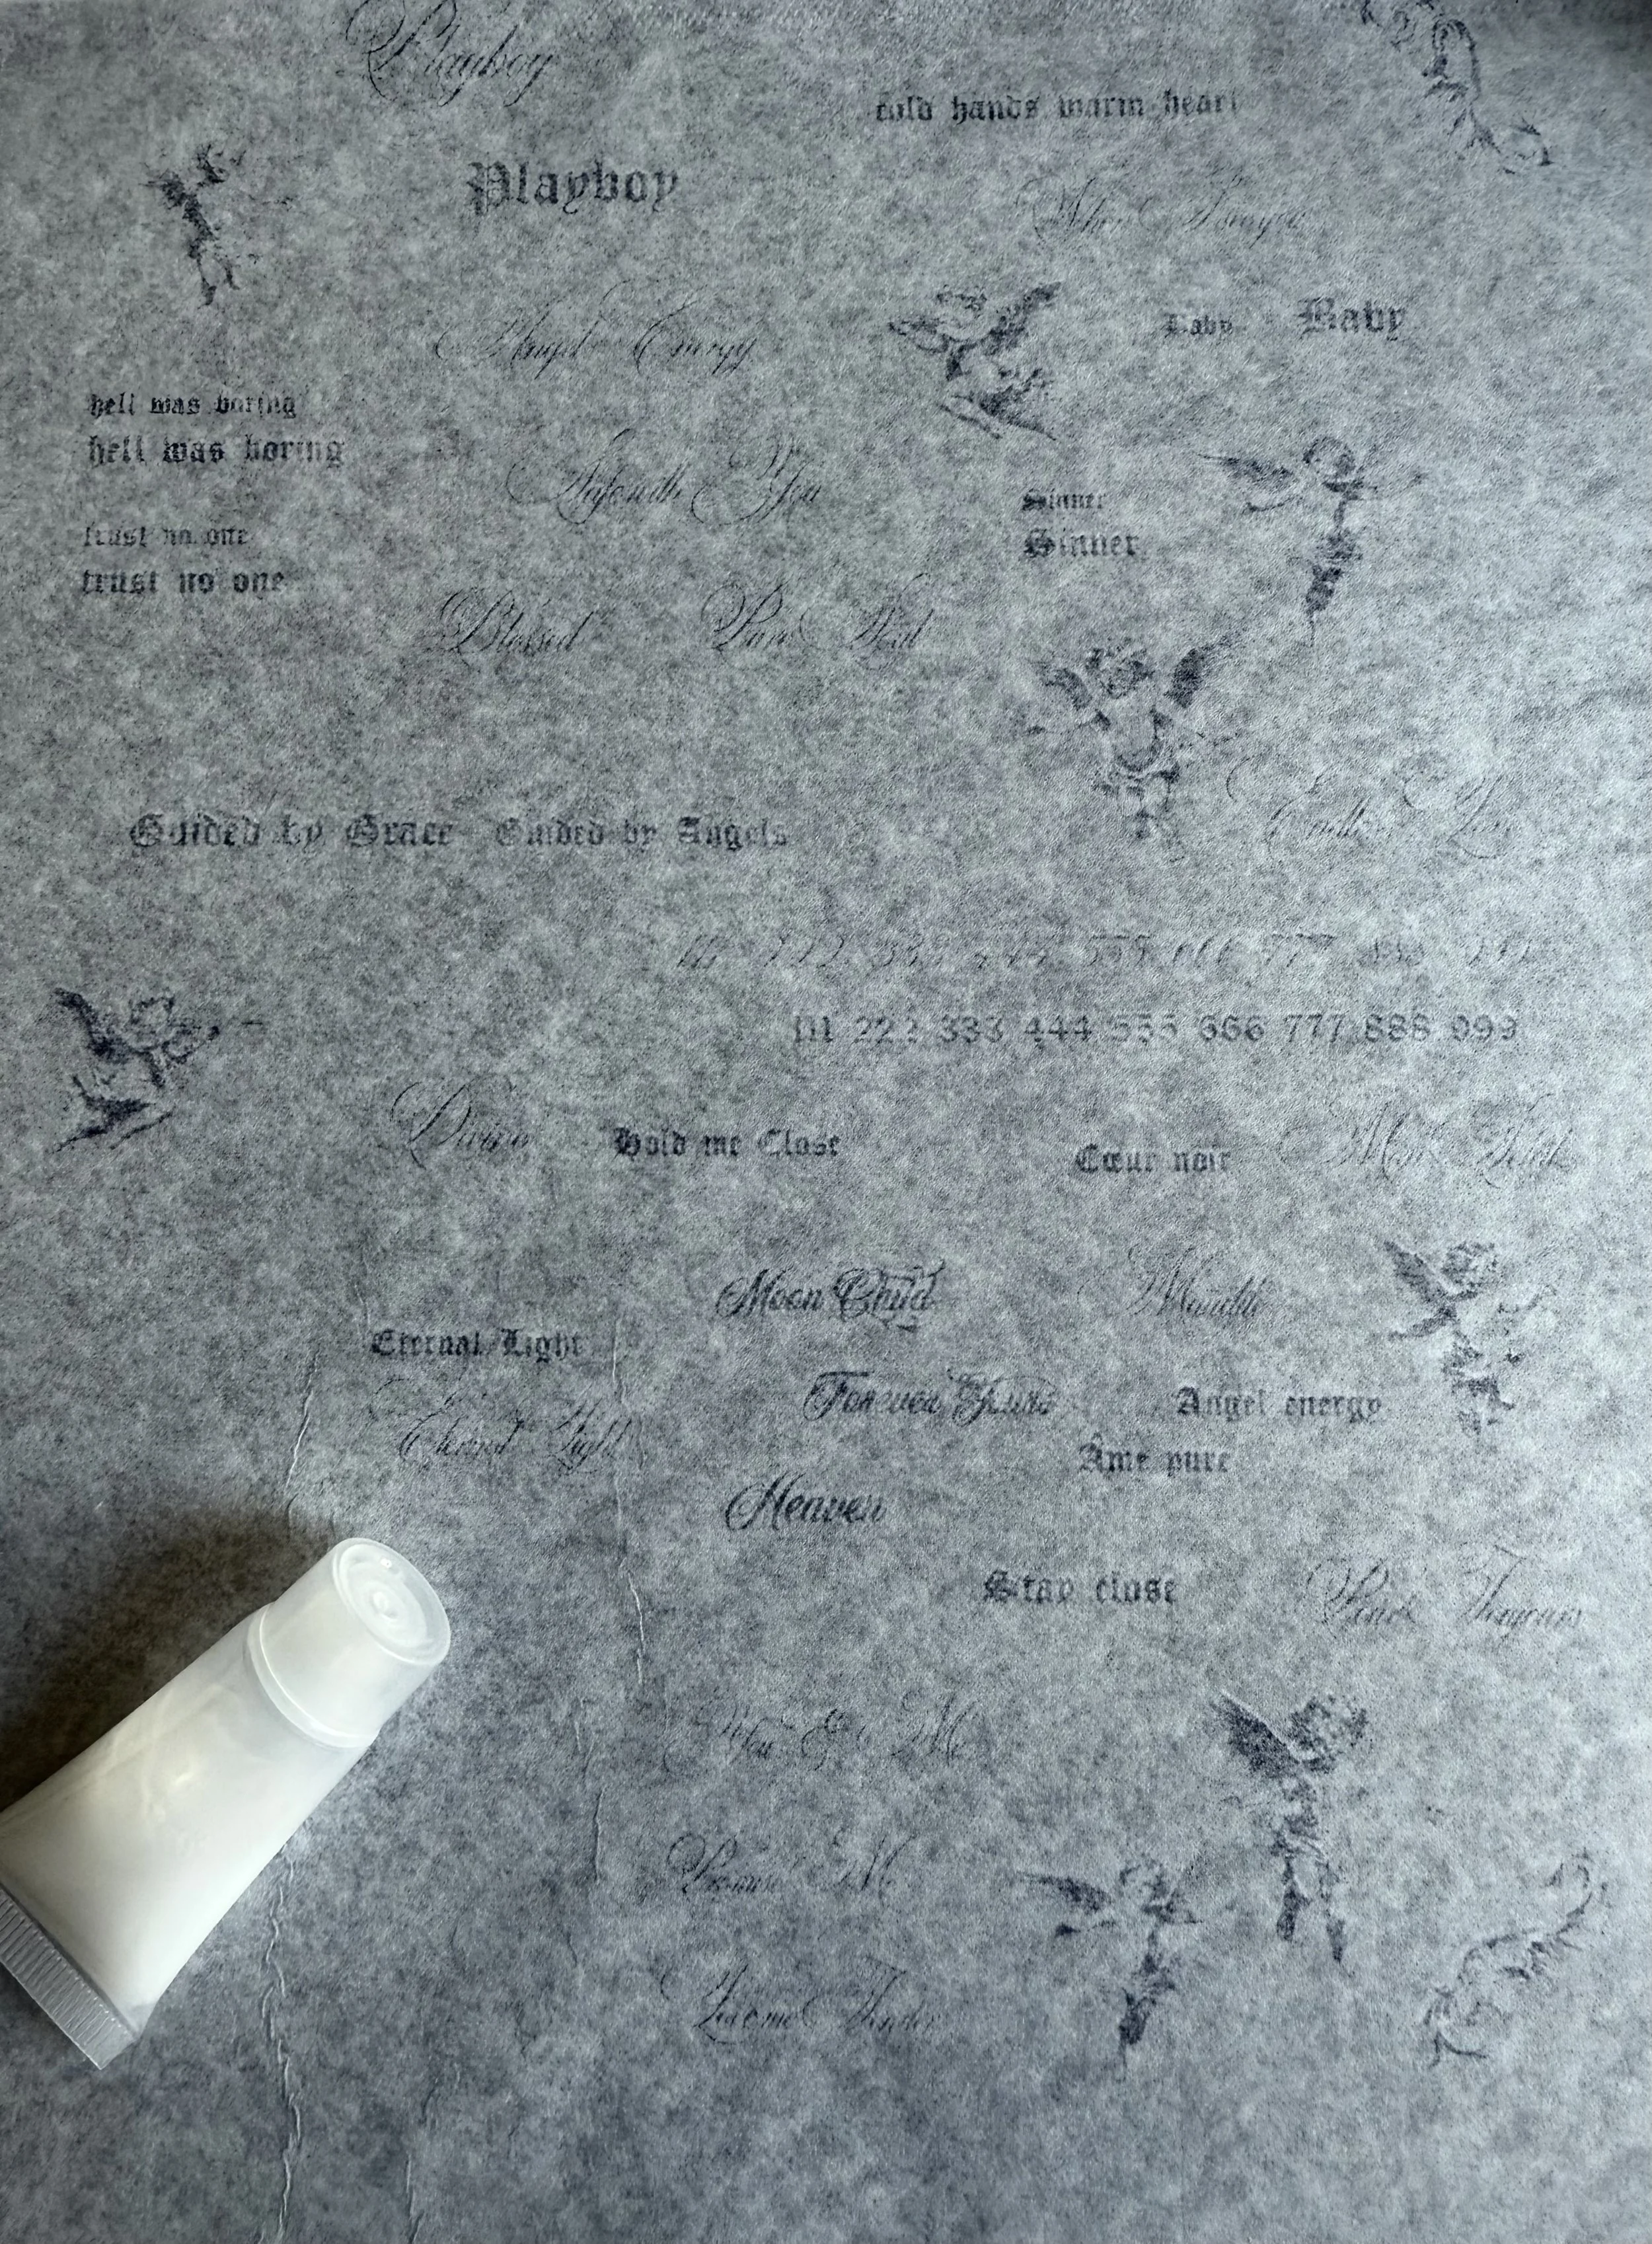 Playboy
cold hands warm heart
Playboy
Angel Energy
Baby Baby
hell was boring
hell was boring
Safe with You
Sinner
trust no one
Sinner
trust no one
Blessed Pure Soul
Endless Love
Guided by Grace Guided by Angels
111 222 333 444 555 666 777 888 999
111 222 333 444 555 666 777 888 999
Divine Hold me Close
Cœur noir
Moon Child Maudite
Eternal Light
Forever Yours Angel energy
Eternal Light
Âme pure
Heaven
Stay close Pour Toujours
You & Me
Promise Me
Love me Tender